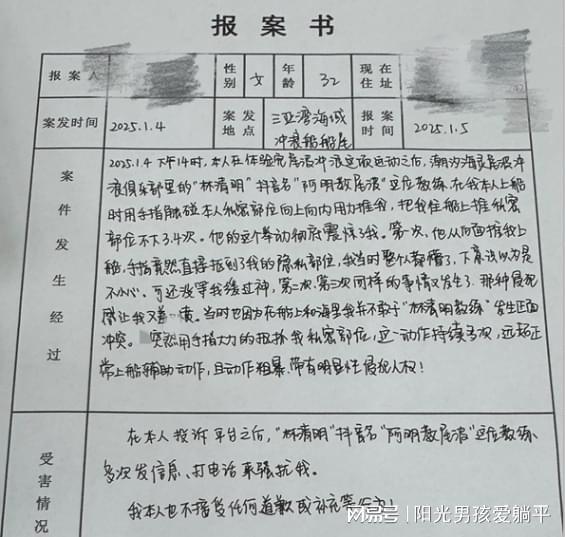 报案书
报案人 性别 女 年龄 32 现在住址
案发时间 2025.1.4 案发地点 三亚湾海域冲浪船船尾 报案时间 2025.1.5
案件发生经过
2025.1.4 下午14时,本人在体验完尾浪冲浪这项运动之后,潮汐海灵尾浪冲
浪俱乐部里的“林清明”抖音名“阿明教尾浪”这位教练,在我本人上船
时用手指触碰本人私密部位向上向内用力推我,把我往船上推私密
部位不下3.4次。他的这个举动彻底震惊了我。第一次,他从后面推我上
船,手指竟然直接抵到了我的隐私部位,我当时整个人都懵了,下意识以为是
不小心、可还没等我缓过神,第二次、第三次同样的事情又发生了.那种侵犯
感让我又羞 当时也因为在船上和海里我并不敢于“林清明教练”发生正面
冲突。 突然用手指大力的 我私密部位,这一动作持续多次,远超正
常上船辅助动作,且动作粗暴、带有明显性侵犯人权!
受害情况
在本人投诉平台之后,“林清明”抖音名“阿明教尾浪”这位教练
多次发信息、打电话来骚扰我。
我本人也不接受任何道歉或补充等行为!
网易号 | 阳光男孩爱躺平